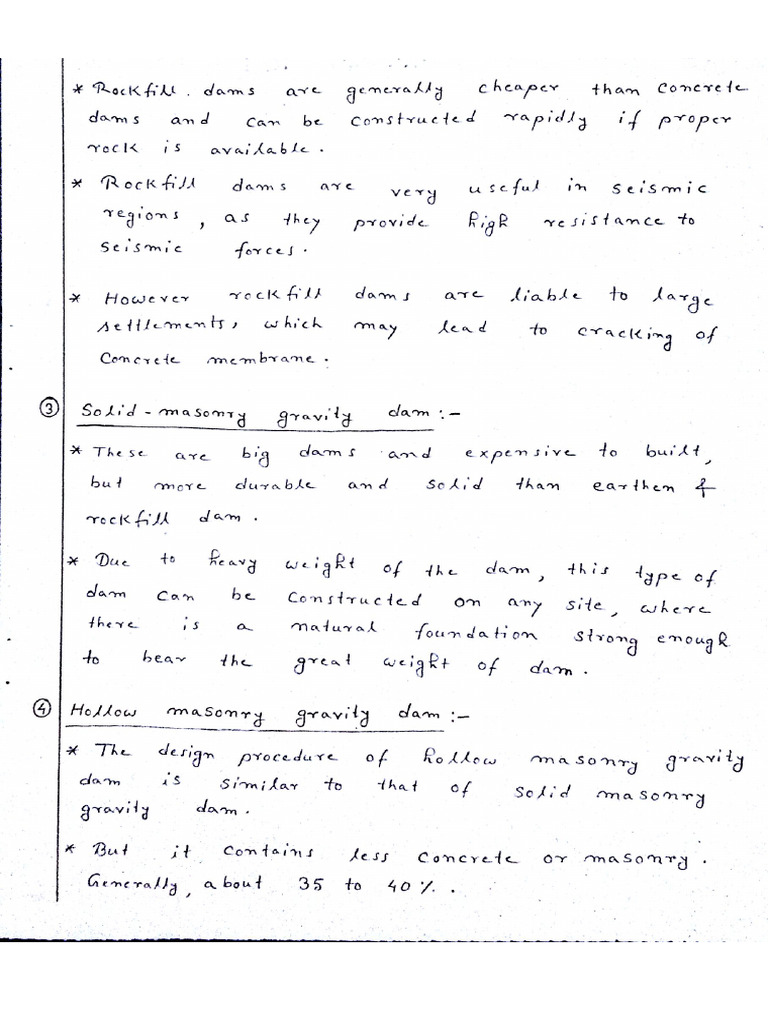 * Rockfill dams are generally cheaper than concrete
dams and can be constructed rapidly if proper
rock is available.
* Rockfill dams are very useful in seismic
regions, as they provide high resistance to
seismic forces.
* However rockfill dams are liable to large
settlements, which may lead to cracking of
concrete membrane.
③ Solid - masonry gravity dam :-
* These are big dams and expensive to built,
but more durable and solid than earthen &
rockfill dam.
* Due to heavy weight of the dam, this type of
dam can be constructed on any site, where
there is a natural foundation strong enough
to bear the great weight of dam.
④ Hollow masonry gravity dam :-
* The design procedure of hollow masonry gravity
dam is similar to that of solid masonry
gravity dam.
* But it contains less concrete or masonry.
Generally, about 35 to 40%.